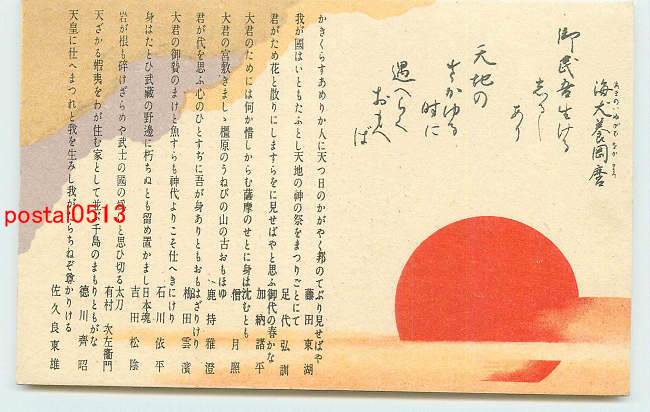 海犬養岡麿
あまのいぬかひをかまろ
御民吾生ける
しるしあり
天地の
さかゆる
時に
遇へらく
おもへば
かきくらすあめりか人に天つ日のかがやく邦のてぶり見せばや
藤田東湖
我が國はいともたふとし天地の神の祭をまつりごとにて
足代弘訓
君がため花と散りにしますらをに見せばやと思ふ御代の春かな
加納諸平
大君のためには何か惜しからむ薩摩のせとに身は沈むとも
僧月照
大君の宮敷きましゝ橿原のうねびの山の古おもほゆ
鹿持雅澄
君が代を思ふ心のひとすぢに吾が身ありともおもはざりけり
梅田雲濱
大君の御贄のまけと魚すらも神代よりこそ仕へきにけり
石川依平
身はたとひ武蔵の野邊に朽ちぬとも留め置かまし日本魂
吉田松陰
岩が根も碎けざらめや武士の國の爲にと思ひ切る太刀
有村次左衞門
天ざかる蝦夷をわが住む家として並ぶ千島のまもりともがな
德川齊昭
天皇に仕へまつれと我を生みし我がたらちねぞ尊かりける
佐久良東雄
postal0513